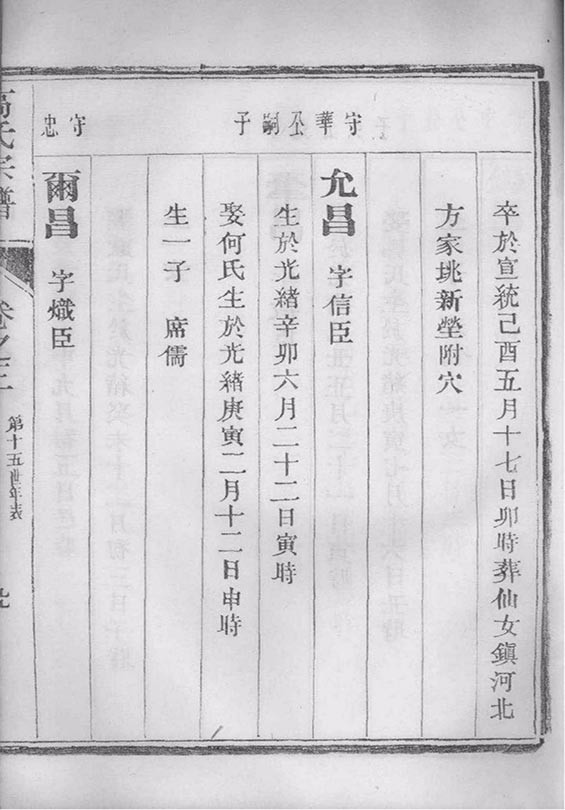 卒於宣統己酉五月十七日卯時葬仙女鎮河北
方家珧新塋附穴
守華公嗣子
允昌 字信臣
生於光緒辛卯六月二十二日寅時
娶何氏生於光緒庚寅二月十二日申時
生一子 席儒
守忠
爾昌 字熾臣
高氏宗譜
卷之二
第十五世年表